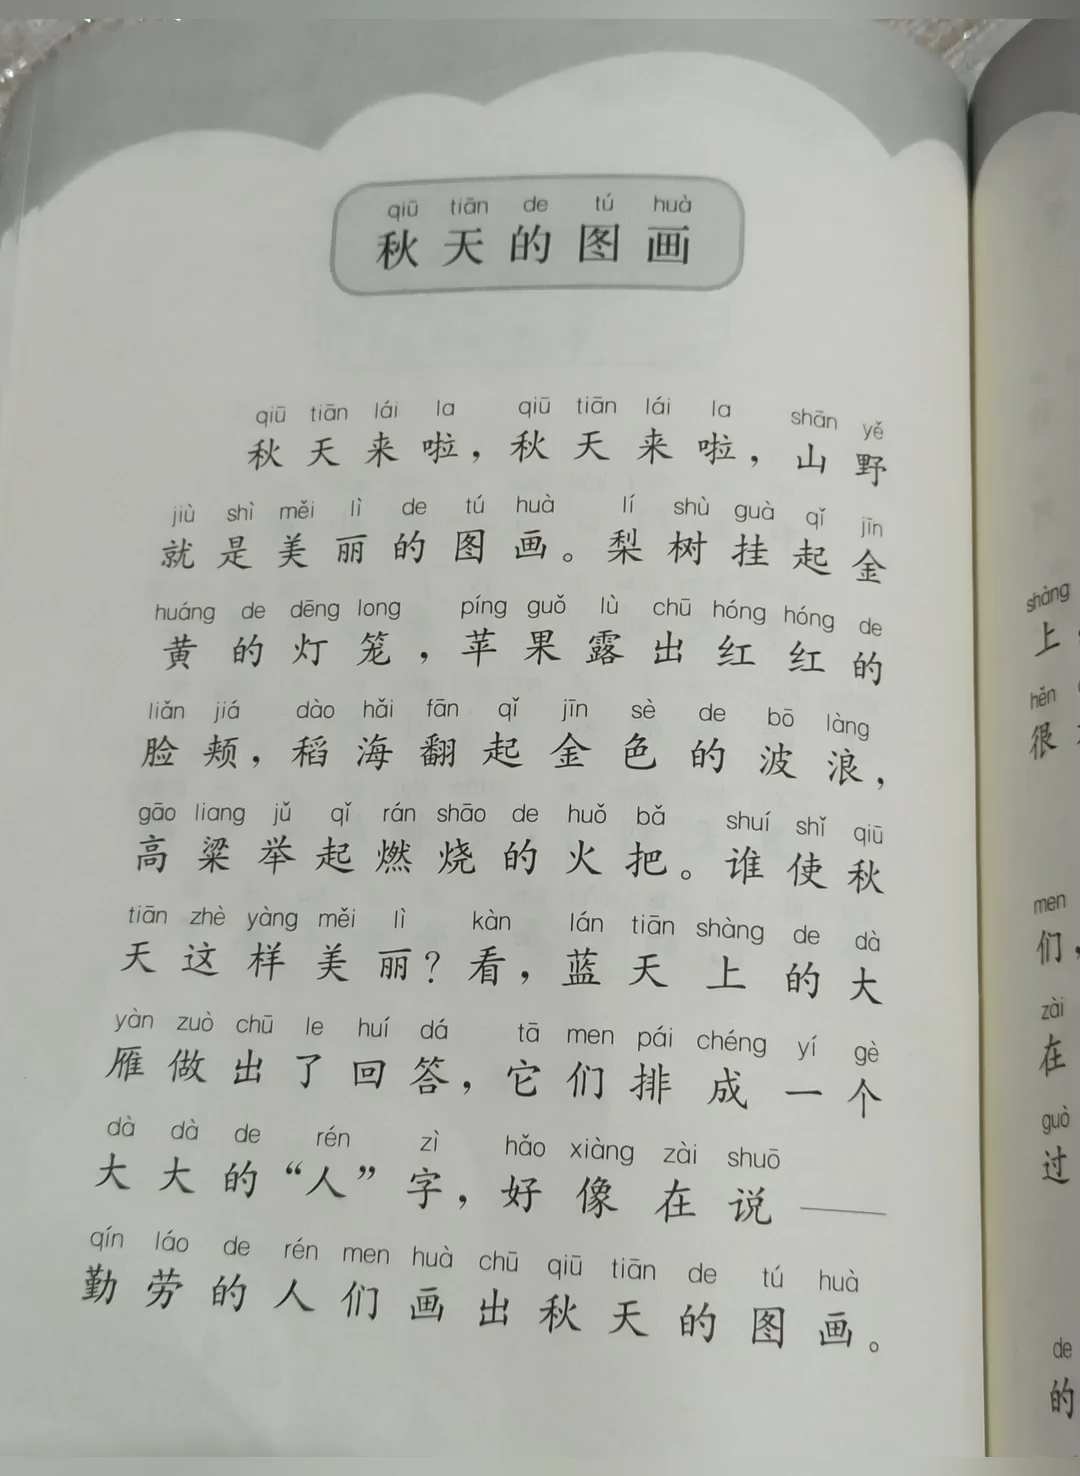 qiū tiān de tú huà
秋天的图画
qiū tiān lái la qiū tiān lái la shān yě
秋天来啦，秋天来啦，山野
jiù shì měi lì de tú huà lí shù guà qǐ jīn
就是美丽的图画。梨树挂起金
huáng de dēng long píng guǒ lù chū hóng hóng de
黄的灯笼，苹果露出红红的
liǎn jiá dào hǎi fān qǐ jīn sè de bō làng
脸颊，稻海翻起金色的波浪，
gāo liang jǔ qǐ rán shāo de huǒ bǎ shuí shǐ qiū
高粱举起燃烧的火把。谁使秋
tiān zhè yàng měi lì kàn lán tiān shàng de dà
天这样美丽？看，蓝天上的大
yàn zuò chū le huí dá tā men pái chéng yí gè
雁做出了回答，它们排成一个
dà dà de rén zì hǎo xiàng zài shuō
大大的“人”字，好像在说——
qín láo de rén men huà chū qiū tiān de tú huà
勤劳的人们画出秋天的图画。
shàng
上
hěn
很
men
们，
zài
在
guò
过
de
的